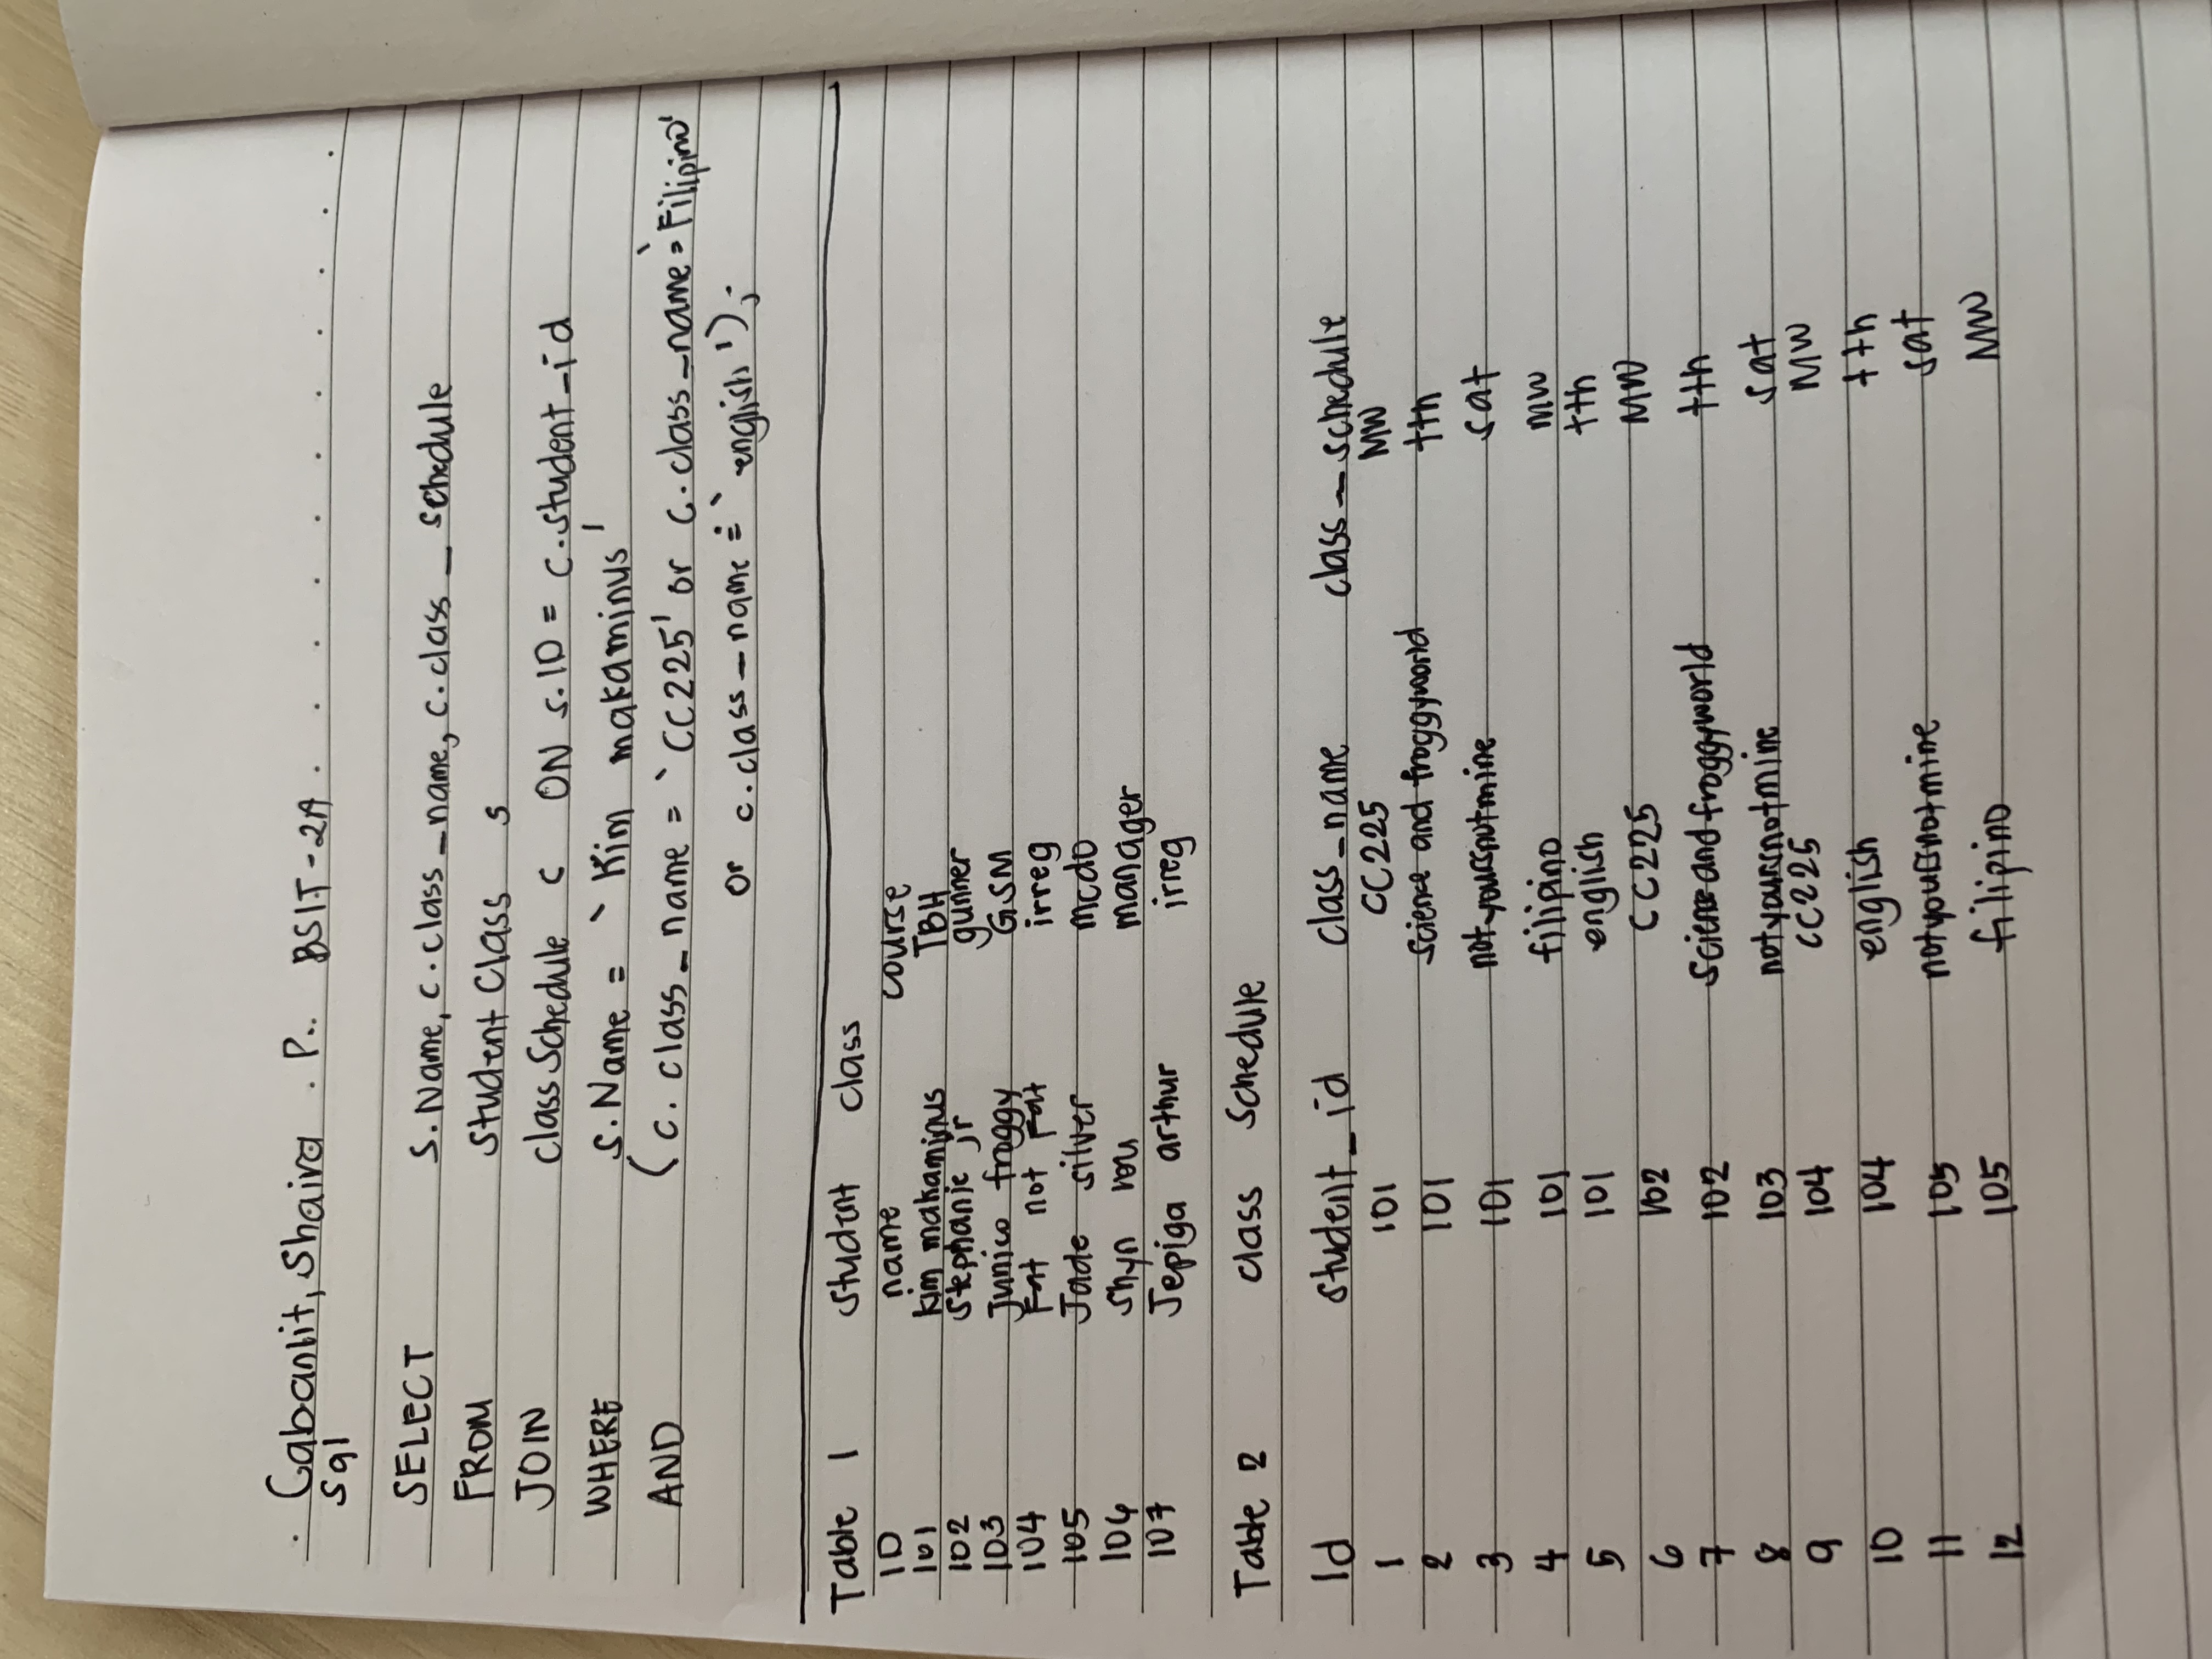 Cabanlit, Shaira . P.. BSIT-2A
Sql
SELECT s.Name, c.class_name, c.class_schedule
FROM Student Class s
JOIN class Schedule c ON s.ID = c.student_id
WHERE s.Name = `Kim makaminus'
AND (c.class_name = `CC225' or c.class_name = `Filipino'
or c.class_name = `english');
Table 1 student class
ID name course
101 kim makaminus TBH
102 Stephanie jr gunner
103 Junico froggy GSM
104 Fat not Fat irreg
105 Jade silver mcdo
106 Shyn manager
107 Jepiga arthur irreg
Table 2 class Schedule
Id student_id class_name class_schedule
1 101 CC225 MW
2 101 science and froggyworld tth
3 101 notyoursnotmine sat
4 101 filipino mw
5 101 english tth
6 102 CC225 MW
7 102 science and froggyworld tth
8 103 notyoursnotmine sat
9 104 CC225 MW
10 104 english tth
11 105 notyoursnotmine sat
12 105 filipino MW